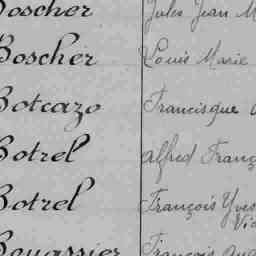 Boscher Jules Jean M
Boscher Louis Marie
Botcazo Francisque
Botrel Alfred Franç
Botrel François Yves
Vic
Bouassier François